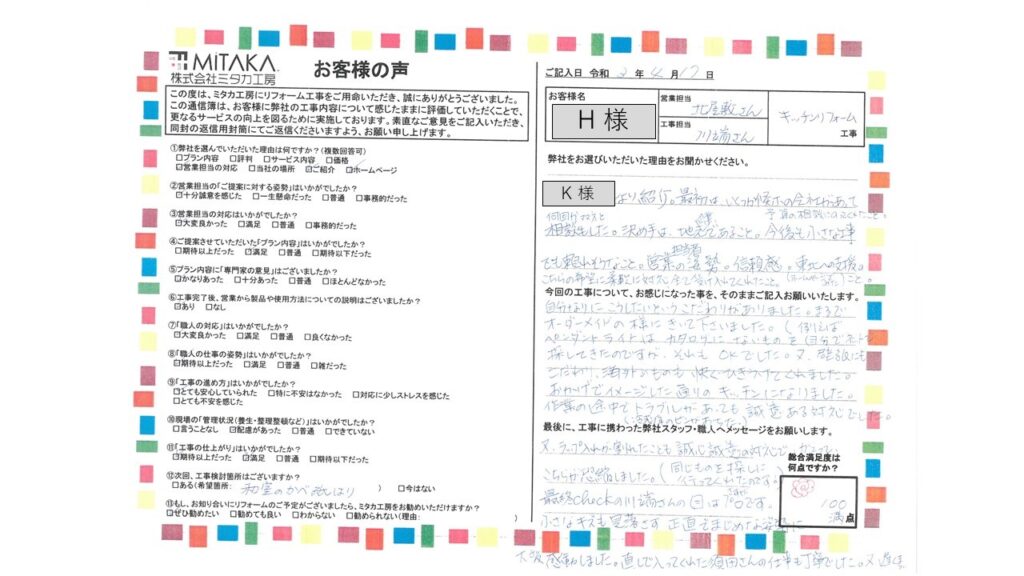 MiTAKA
株式会社ミタカ工房
お客様の声
この度は、ミタカ工房にリフォーム工事をご用命いただき、誠にありがとうございました。
この通信簿は、お客様に弊社の工事内容について感じたままに評価していただくことで、
更なるサービスの向上を図るために実施しております。素直なご意見をご記入いただき、
同封の返信用封筒にてご返信くださいますよう、お願い申し上げます。
①弊社を選んでいただいた理由は何ですか?(複数回答可)
□プラン内容 □評判 □サービス内容 □価格
☑営業担当の対応 □当社の場所 ☑ご紹介 ☑ホームページ
②営業担当の「ご提案に対する姿勢」はいかがでしたか?
☑十分誠意を感じた □一生懸命だった □普通 □事務的だった
③営業担当の対応はいかがでしたか?
☑大変良かった □満足 □普通 □事務的だった
④ご提案させていただいた「プラン内容」はいかがでしたか?
□期待以上だった ☑満足 □普通 □期待以下だった
⑤プラン内容に「専門家の意見」はございましたか?
☑かなりあった □十分あった □普通 □ほとんどなかった
⑥工事完了後、営業から製品や使用方法についての説明はございましたか?
☑あり □なし
⑦「職人の対応」はいかがでしたか?
☑大変良かった □満足 □普通 □良くなかった
⑧「職人の仕事の姿勢」はいかがでしたか?
☑期待以上だった □満足 □普通 □雑だった
⑨「工事の進め方」はいかがでしたか?
□とても安心していられた □特に不安はなかった □対応に少しストレスを感じた
□とても不安を感じた
⑩現場の「管理状況(養生・整理整頓など)」はいかがでしたか?
□言うことなし ☑配慮があった □普通 □できていない
⑪「工事の仕上がり」はいかがでしたか?
□期待以上だった ☑満足 □普通 □期待以下だった
⑫次回、工事検討箇所はございますか?
□ある(希望箇所: 和室のかべ紙はり ) □今はない
⑬もし、お知り合いにリフォームのご予定がございましたら、ミタカ工房をお勧めいただけますか?
□ぜひ勧めたい □勧めても良い □わからない □勧められない(理由: )
ご記入日 令和 2 年 4 月 17 日
お客様名
H 様
営業担当
北屋敷さん
工事担当
川端さん
キッチンリフォーム
工事
弊社をお選びいただいた理由をお聞かせください。
K 様
より紹介。最初は、いくつか
相談した。決め手は、地元であること。今後も小さな工事
でも頼れそうなこと。営業の姿勢。信頼感。東北への支援。
今回の工事について、お感じになった事を、そのままご記入お願いいたします。
自分なりにこうしたいというこだわりがありました。まるで
オーダーメイドの様にきいて下さいました。(例えば
ペンダントライトはカタログにないものを自分でネットで
探してきたのですが、それもOKでした。又、壁紙にも
こだわり、海外のものも快くひきうけてくれました。
おかげでイメージした通りのキッチンになりました。
作業の途中でトラブルがあっても誠意ある対応でした。
最後に、工事に携わった弊社スタッフ・職人へメッセージをお願いします。
こちらが恐縮しました。(同じものを探しに行ってくれたのです。)
最終checkの川端さんの目はプロです。
小さなキズも見落とさず正直でまじめな姿勢に
大変感動しました。直しで入ってくれた須田さんの仕事も丁寧でした。
総合満足度は
何点ですか?
100
満 点